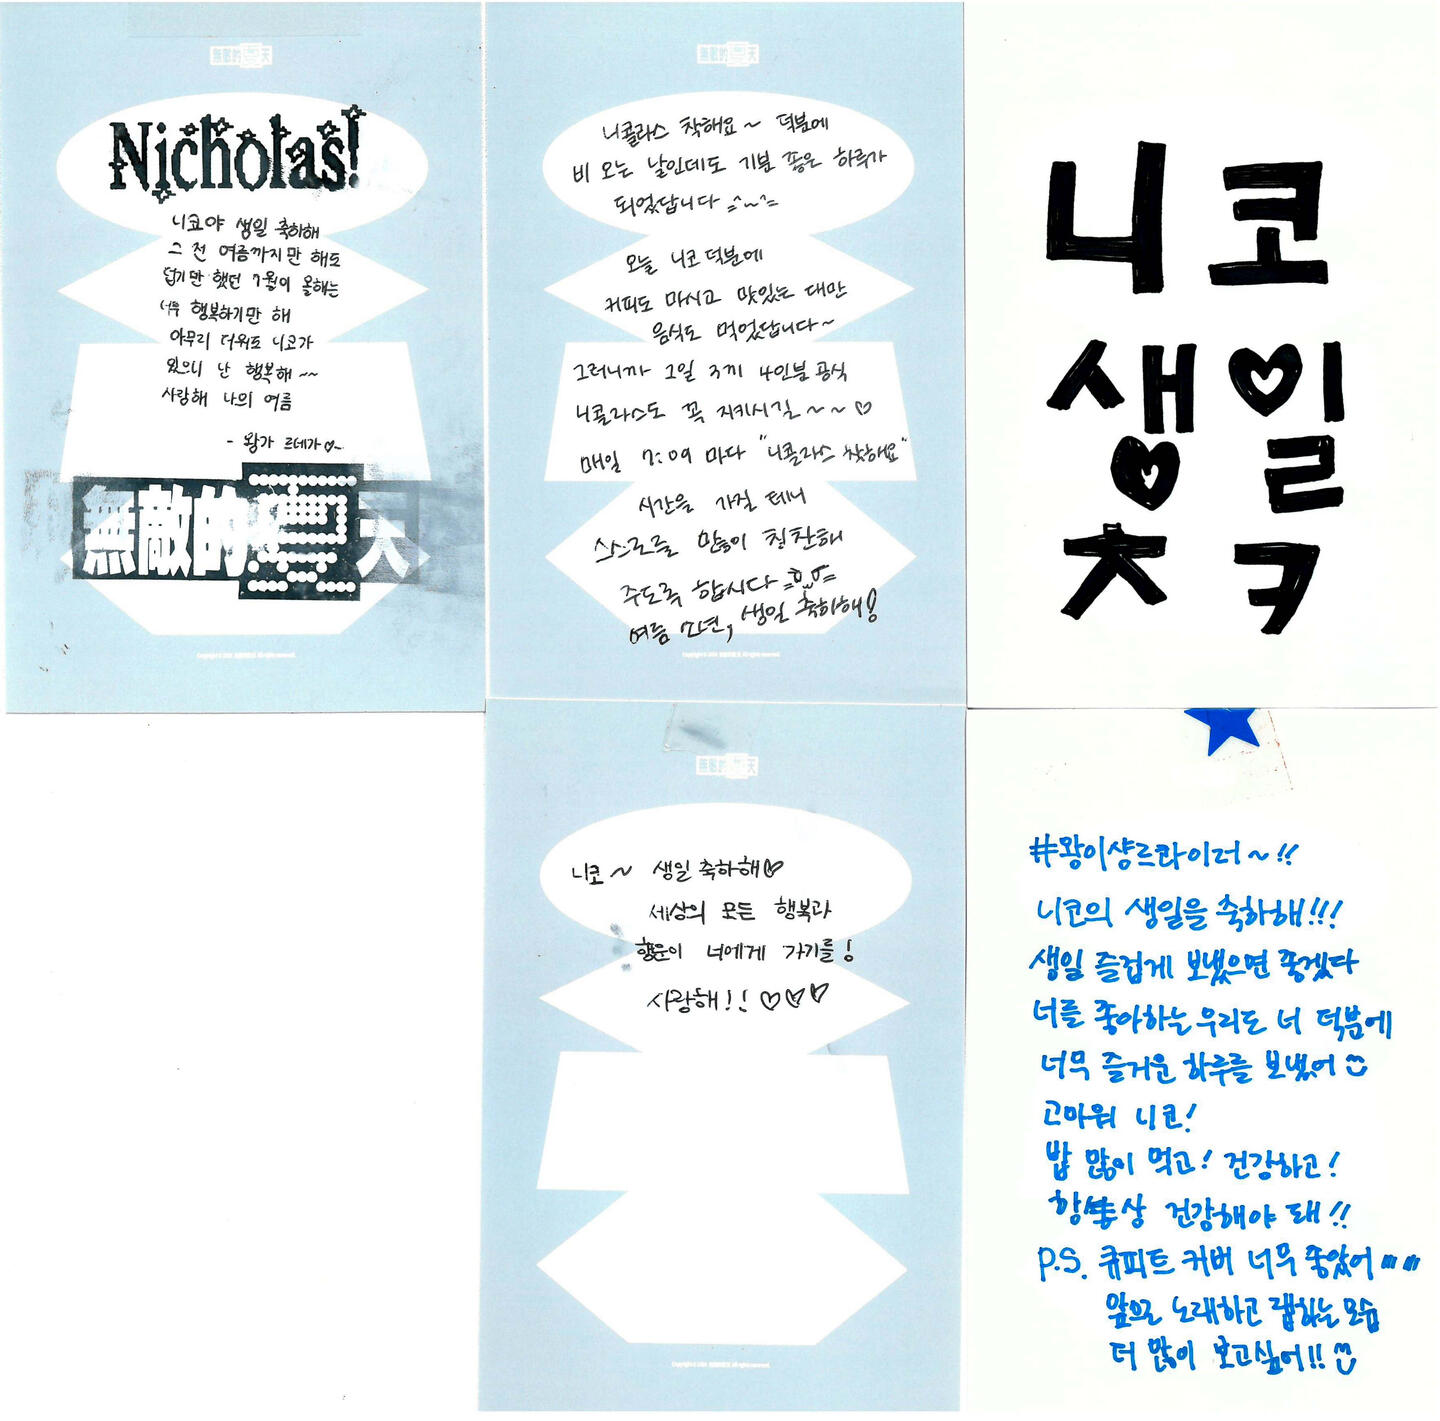 無敵的夏天
Nicholas!
니코야 생일 축하해
그 전 여름까지만 해도
덥기만 했던 7월이 올해는
너무 행복하기만 해
아무리 더워도 니코가
있으니 난 행복해 ~~
사랑해 나의 여름
- 왕가 르네가♡-
無敵的夏天
無敵的夏天
니콜라스 착해요 ~ 덕분에
비 오는 날인데도 기분 좋은 하루가
되었답니다 =^~^=
오늘 니코 덕분에
커피도 마시고 맛있는 대만
음식도 먹었답니다~
그러니까 1일 3끼 4인분 공식
니콜라스도 꼭 지키시길 ~ ~ ♡
매일 7:09 마다 "니콜라스 착해요"
시간을 가질 테니
스스로를 많이 칭찬해
주도록 합시다
여름 소년, 생일 축하해!
니코
생일
ㅊㅋ
無敵的夏天
니코 ~ 생일 축하해♡
세상의 모든 행복과
행운이 너에게 가기를!
사랑해!! ♡♡♡
#왕이샹르콰이러~!!
니코의 생일을 축하해!!!
생일 즐겁게 보냈으면 좋겠다
너를 좋아하는 우리도 너 덕분에
너무 즐거운 하루를 보냈어
고마워 니코!
밥 많이 먹고! 건강하고!
항상 건강해야 돼!!
P.S. 큐피트 커버 너무 좋았어 ㅠㅠ
앞으로 노래하고 랩하는 모습
더 많이 보고싶어!!